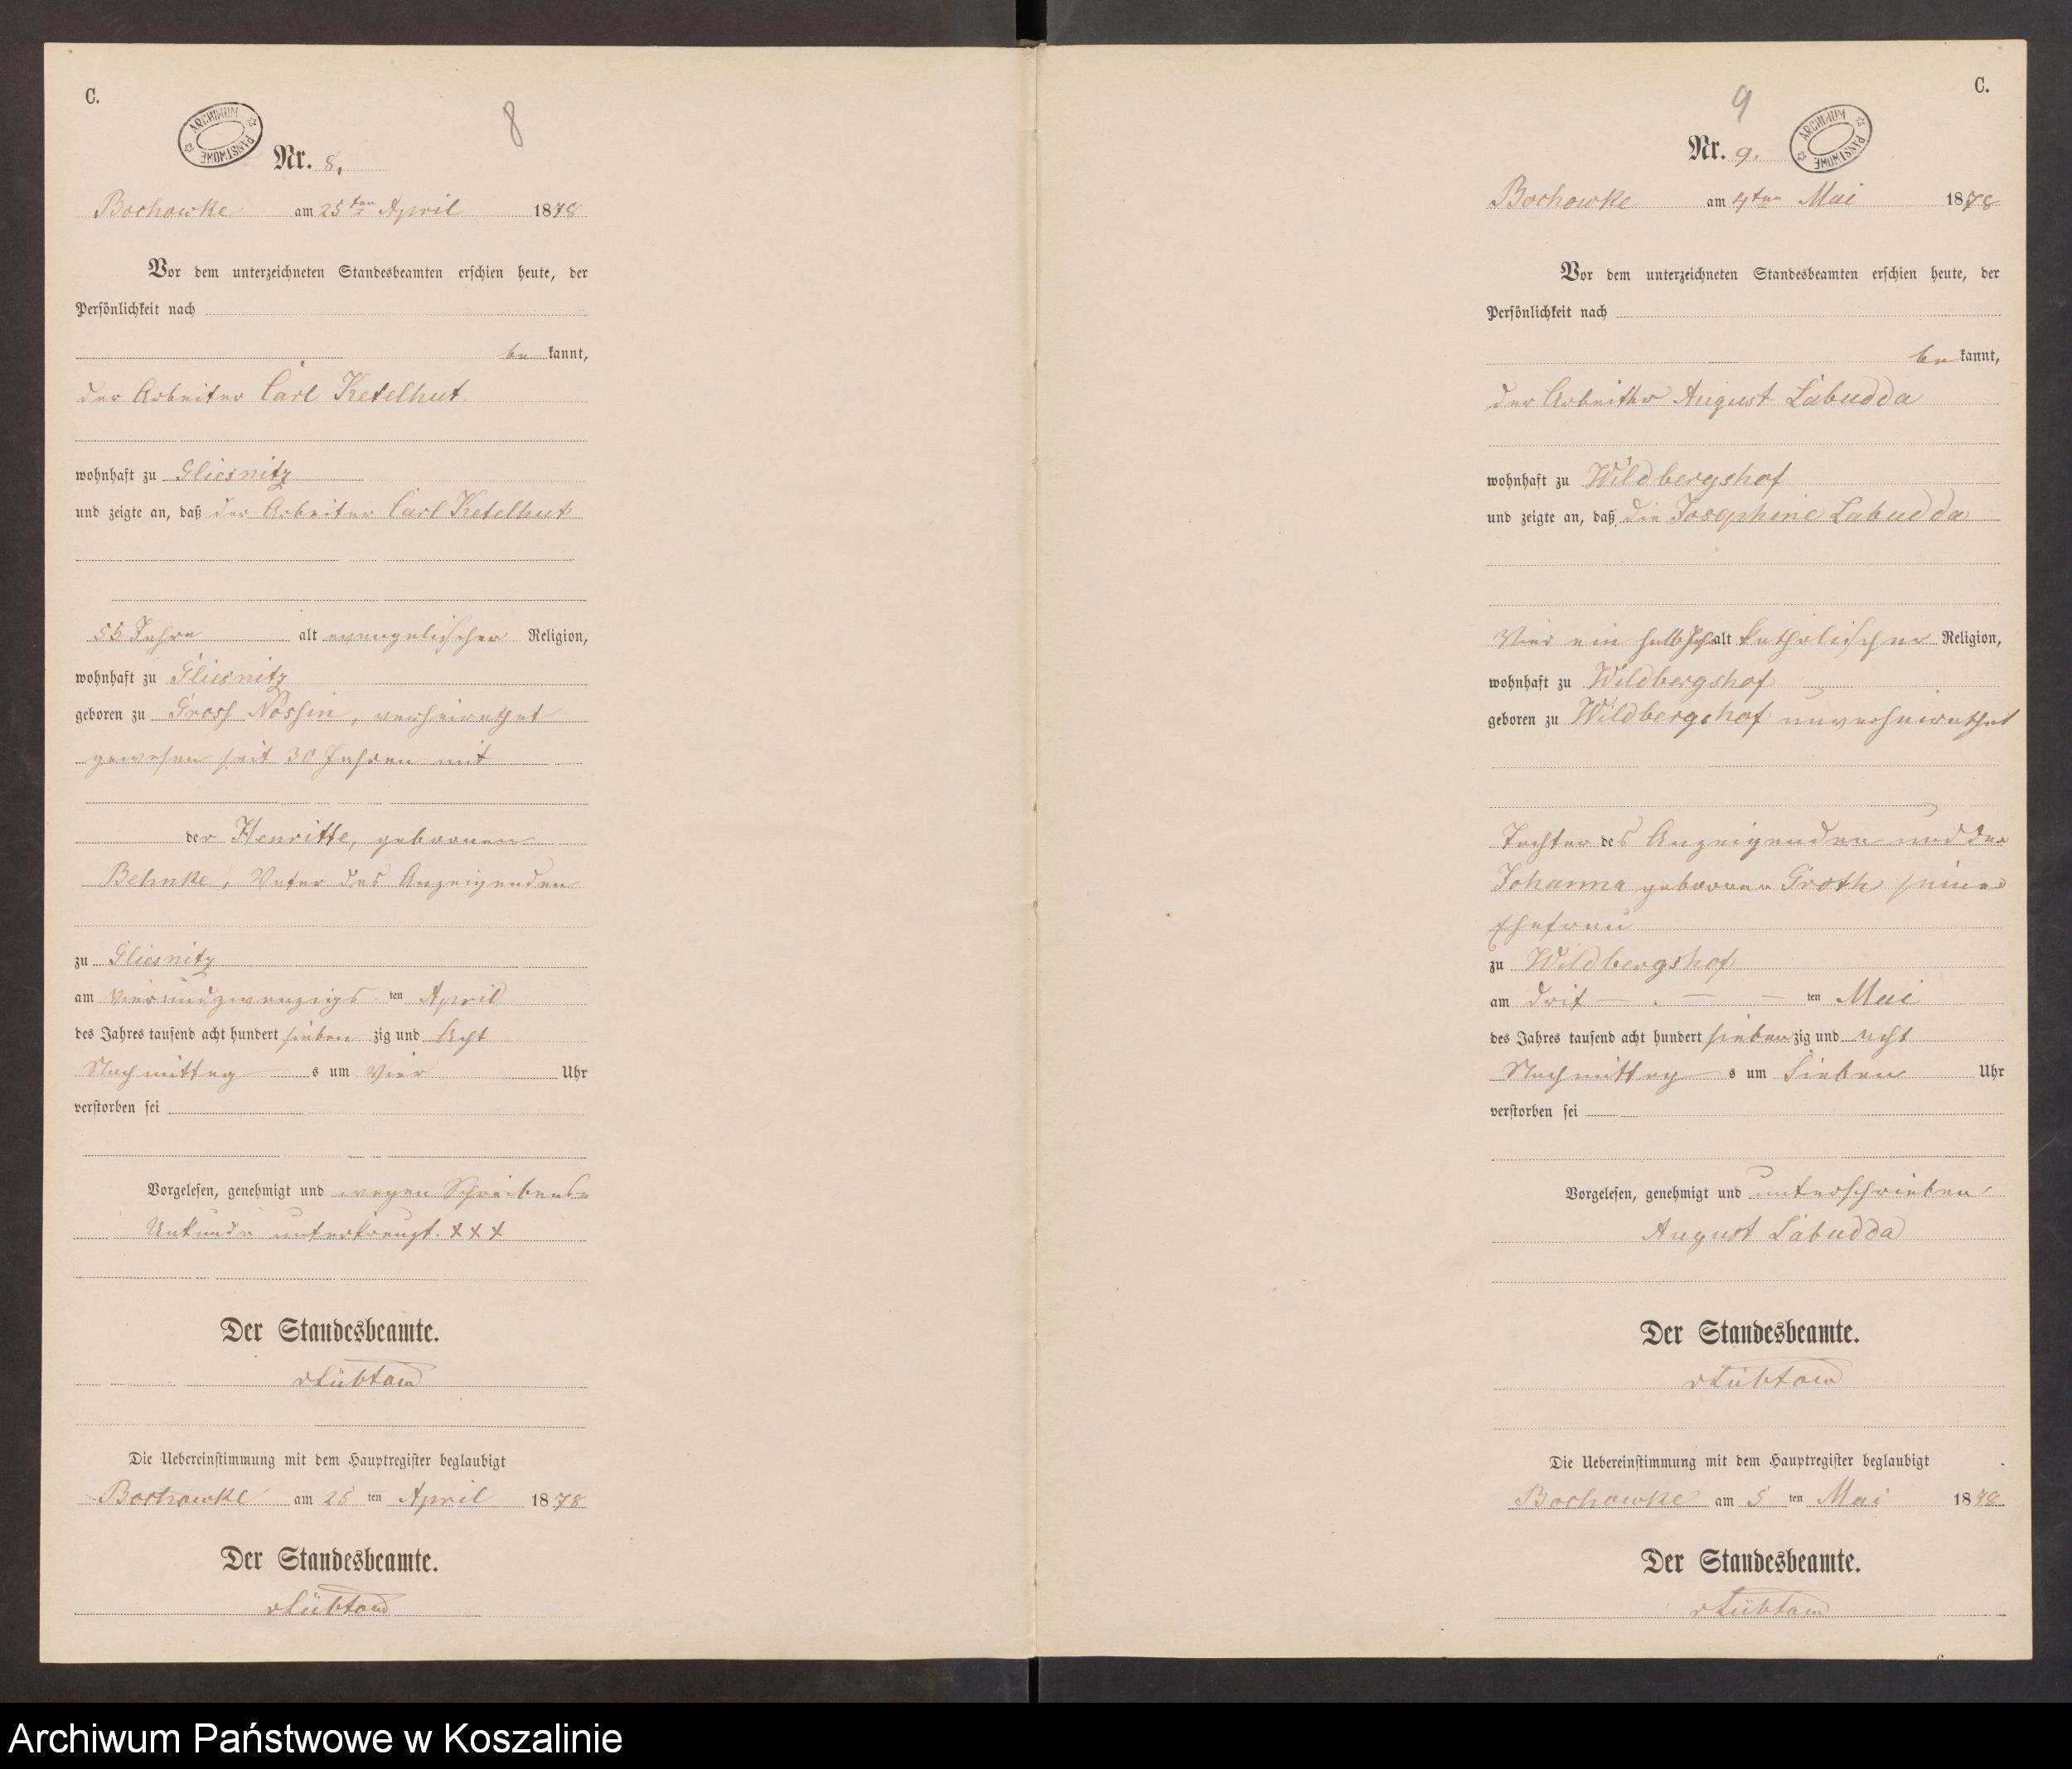 C.
ARCHIWUM PAŃSTWOWE
8
Nr. 8.
Bochowke am 25ten April 1878
Vor dem unterzeichneten Standesbeamten erschien heute, der
Persönlichkeit nach
be kannt,
der Arbeiter Carl Ketelhut
wohnhaft zu Gliesnitz
und zeigte an, daß der Arbeiter Carl Ketelhut
55 Jahre alt evangelischer Religion,
wohnhaft zu Gliesnitz
geboren zu Gross Nossin, verheirathet
gewesen seit 30 Jahren mit
der Henritte, geborenen
Behnke, Vater des Anzeigenden
zu Gliesnitz
am vierundzwanzigs ten April
des Jahres tausend acht hundert sieben zig und Acht
Nachmittag s um Vier Uhr
verstorben sei
Vorgelesen, genehmigt und wegen Schreibens
Unkunde unterkreuzt. XXX
Der Standesbeamte.
vLübtow
Die Uebereinstimmung mit dem Hauptregister beglaubigt
Bochowke am 25 ten April 1878
Der Standesbeamte.
vLübtow
C.
9
ARCHIWUM PAŃSTWOWE
Nr. 9.
Bochowke am 4ten Mai 1878
Vor dem unterzeichneten Standesbeamten erschien heute, der
Persönlichkeit nach
be kannt,
der Arbeiter August Labudda
wohnhaft zu Wildbergshof
und zeigte an, daß die Josephine Labudda
Vier ein halb Jahr alt katholischer Religion,
wohnhaft zu Wildbergshof
geboren zu Wildbergshof unverheirathet
Tochter des Anzeigenden und der
Johanna geborenen Groth seiner
Ehefrau
zu Wildbergshof
am drit ten Mai
des Jahres tausend acht hundert sieben zig und acht
Nachmittag s um Sieben Uhr
verstorben sei
Vorgelesen, genehmigt und unterschrieben
August Labudda
Der Standesbeamte.
vLübtow
Die Uebereinstimmung mit dem Hauptregister beglaubigt
Bochowke am 5 ten Mai 1878
Der Standesbeamte.
vLübtow
Archiwum Państwowe w Koszalinie